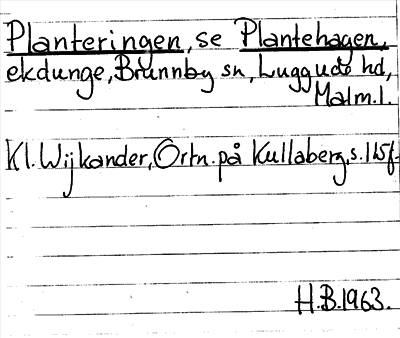 Planteringen, se Plantehagen,
ekdunge, Brunnby sn, Luggude hd,
Malm.l.
Kl. Wijkander, Ortn. på Kullaberg, s. 145f.
H.B. 1963.